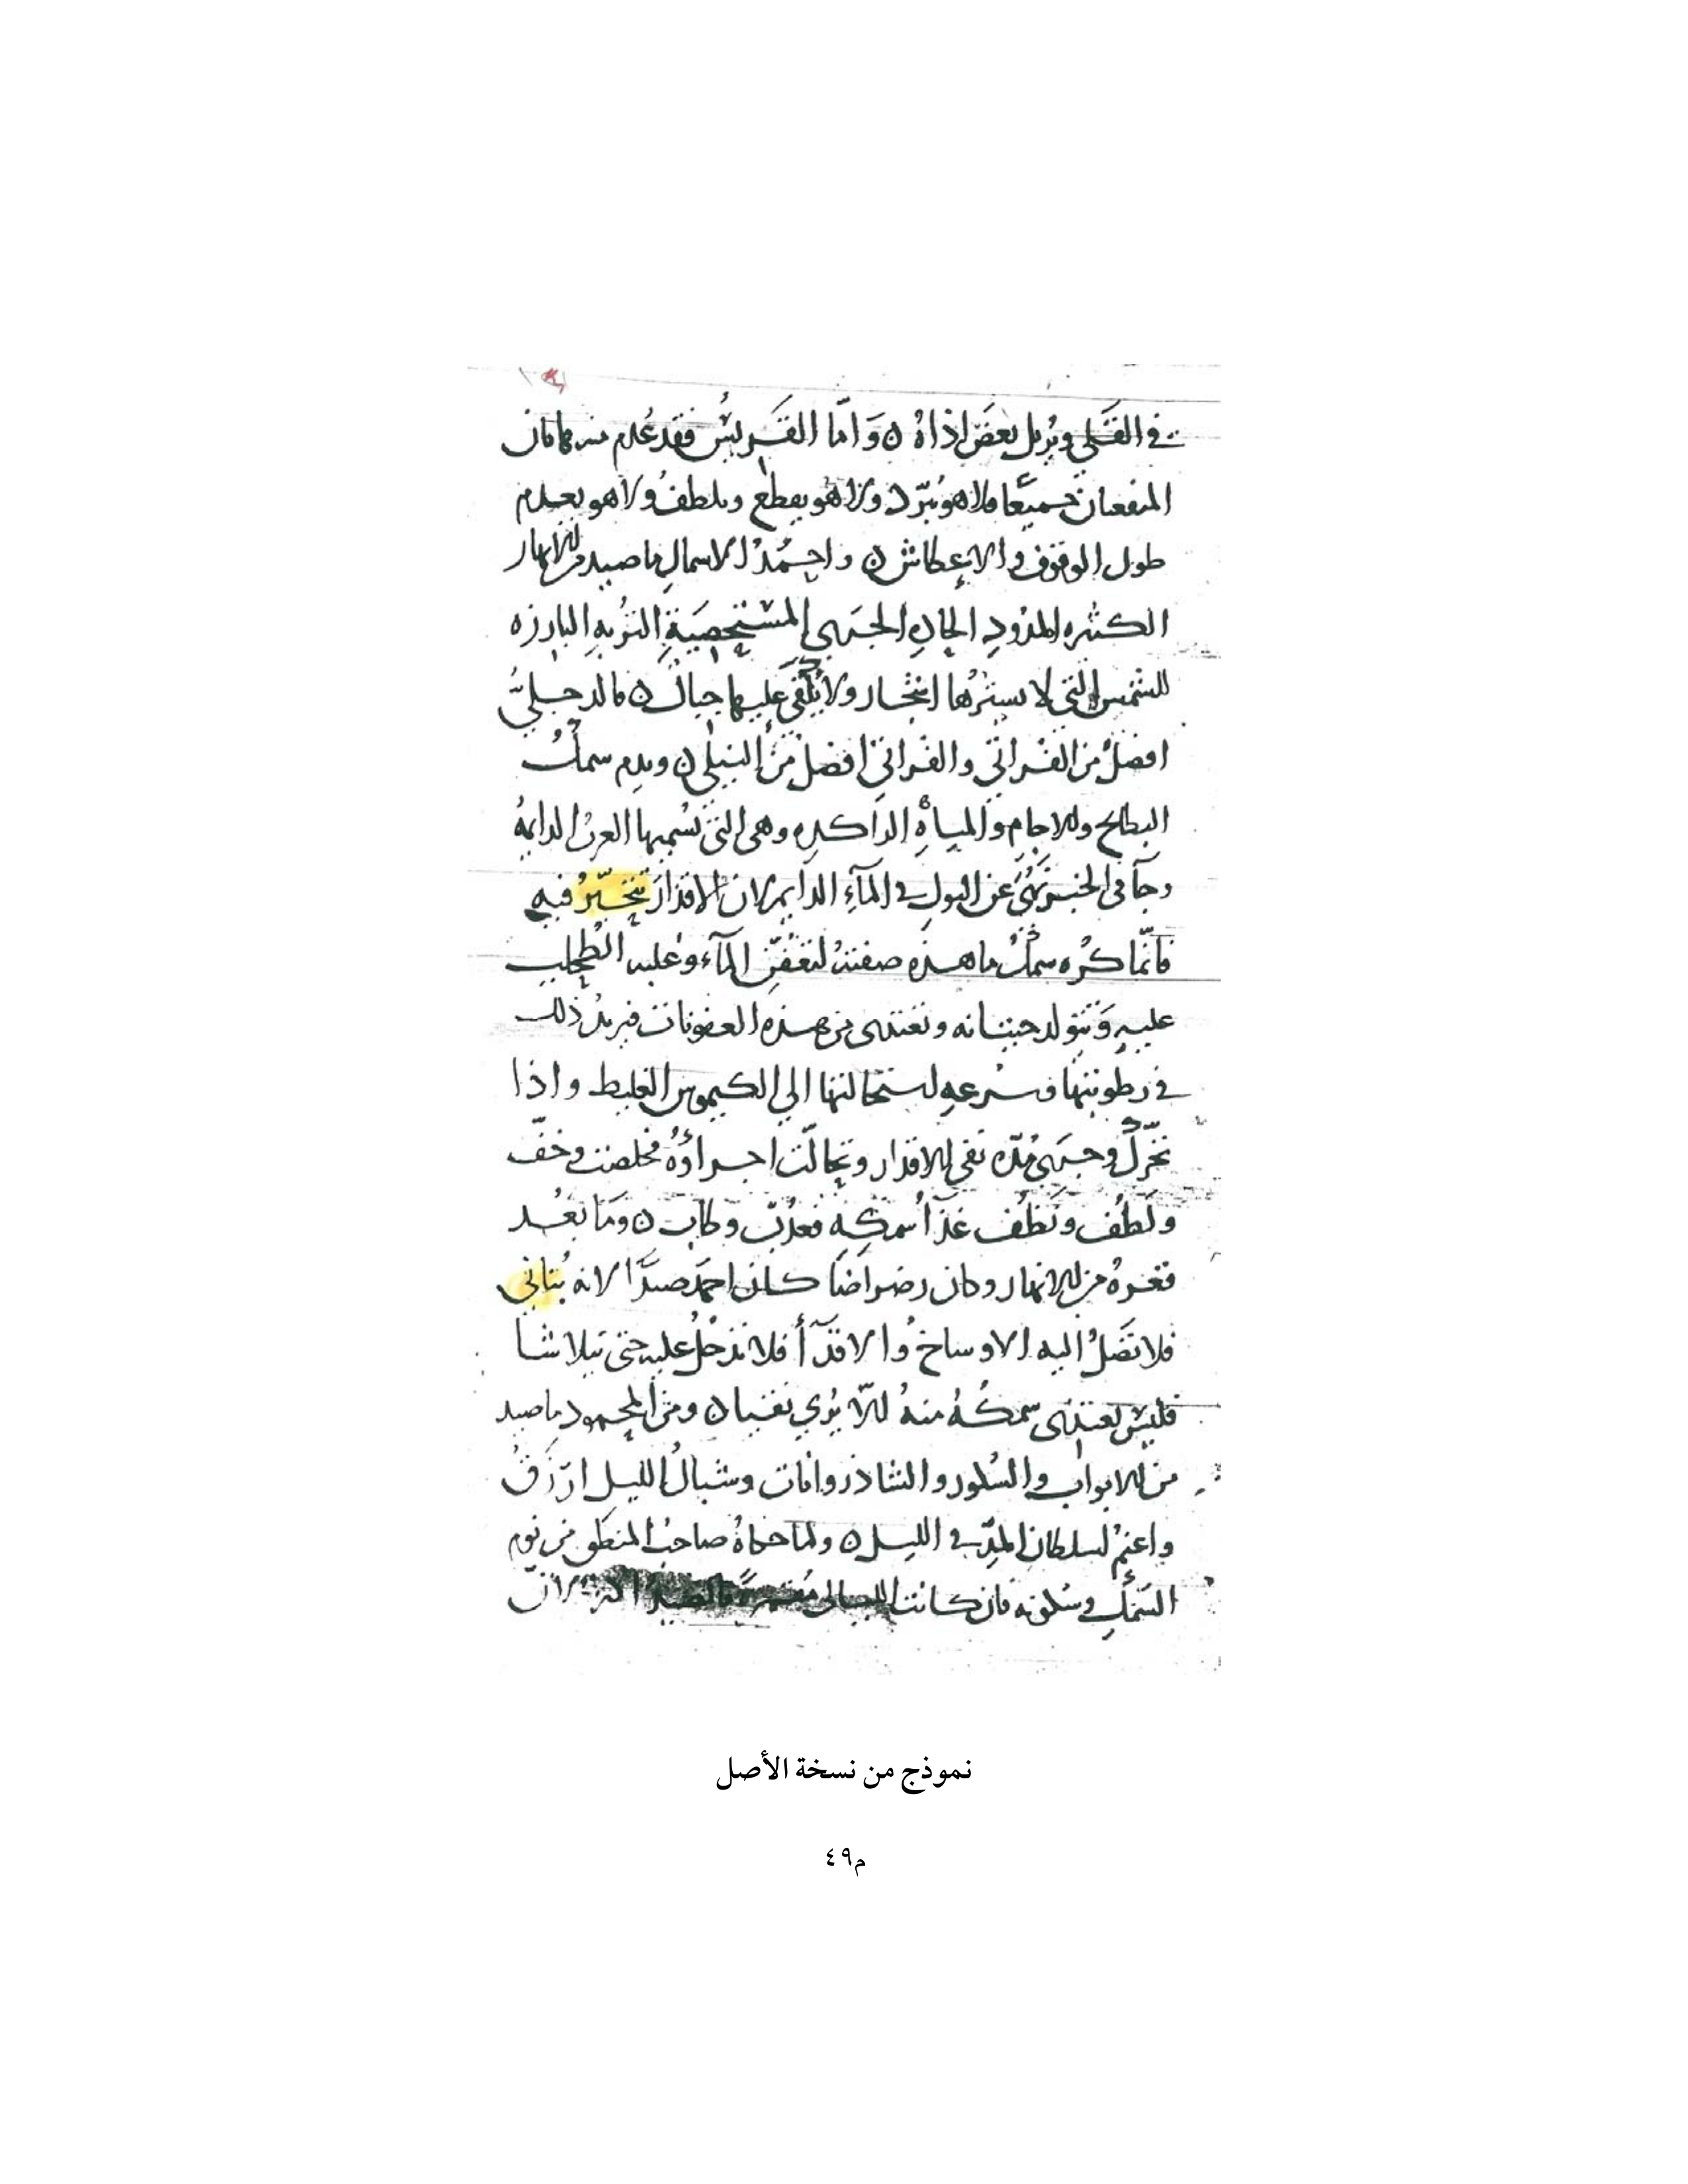 في القلي ويزيل بعض اذاه ن وَامّا القَريسُ فقد عُدم منهما كان
المنفعتان جميعًا فلا هو يُبرّد ولا هو يقطع ويلطفُ ولا هو يعدم
طول الوقوف والاعطاش ن واحمَدُ الاسمال ما صيد من الانهار
الكثيره المدُودِ الجادِ الجري المستحصبَةِ التربه البارزه
للشمس التي لا يسترُها اشجار ولا يُلقى عليها جبال ن فالدجليُّ
افضلُ من الفراتي والفراتي افضل مِنَ النيلي ن ويذم سمكُ
البطائح والاجام والمياهِ الراكده وهي التي تسميها العربُ الدايمهُ
وجآ في الخبر نُهيَ عن البول في المآءِ الدايم لان الاقذارَ تتخيّرُ فيه
فانّما كُره سمكُ ما هذه صفته لتعفّن المآء وعليه الطحلب
عليهِ وَتتولد حيتانه وتغتذى من هذه العفونات فيزيدُ ذلك
في رطوبتها وسرعه استحالتها الي الكيموس الغليظ واذا
تحرّكَ وجَرى مدّه نفى الاقذار وتحالّت اجزاؤهُ فخلصت وخفّ
ولطُف ونَظُف غذآ سمكِه فعذُبَ وطاب ن ومَا بَعُد
قعرهُ من الانهار وكان رضراضًا كان احمَد صيدًا لانه
فلا تَصَلُ اليه الاوساخُ والاقذآ فلا تدخُل عليه حتى تتلاشا
فليسَ يغتذى سمكُهُ منهُ الّا بزي نفيان ومن المحمود ما صيد
من الابواب والسكور والشاذروانات وشبالُ الليل ارزَقُ
واغنمُ لسلطان المدّ في الليل ن ولما حكاهُ صاحبُ المنطق من نوم
السَمَكِ وسكونه فان كانت الليالي مقمرةً فالصيدُ اكثر لانّ
نموذج من نسخة الأصل
م٤٩